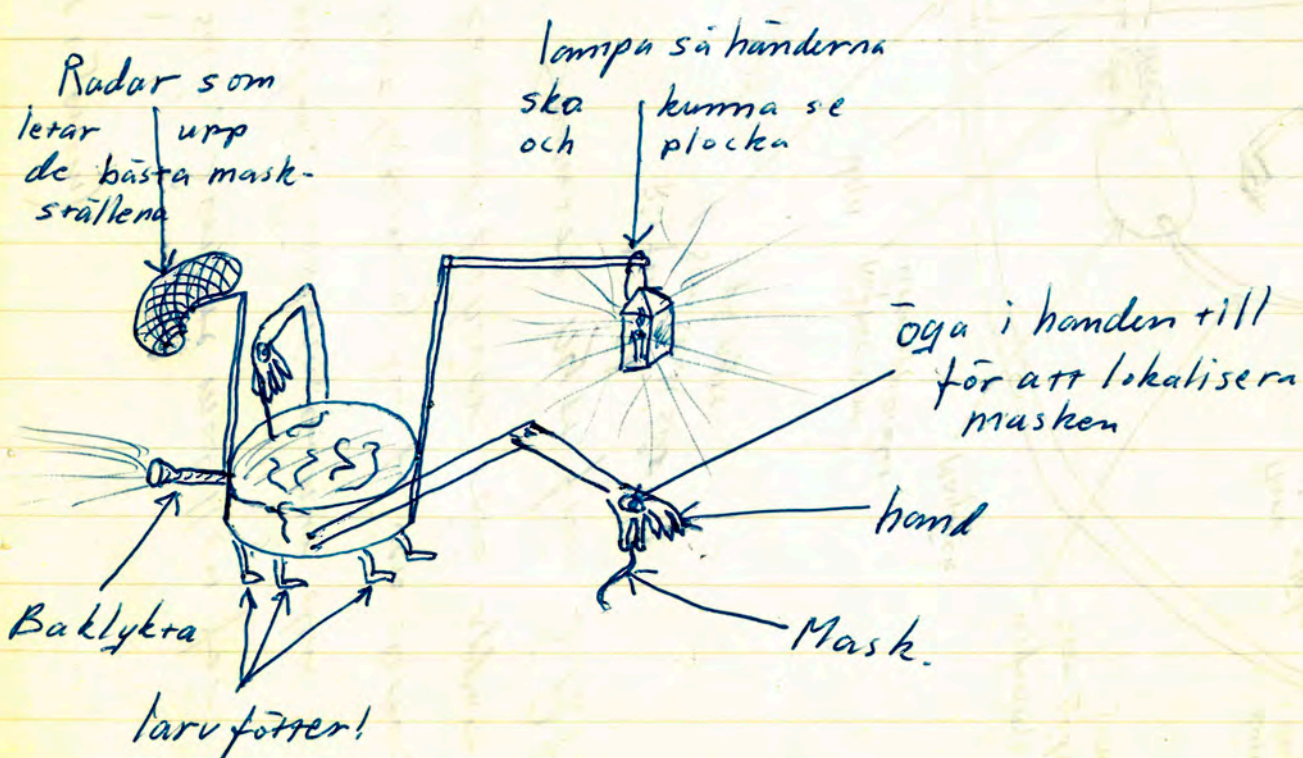 Radar som
letar upp
de bästa mask-
ställena
lampa så händerna
ska kunna se
och plocka
öga i handen till
för att lokalisera
masken
hand
Mask.
Baklykta
larvfötter!